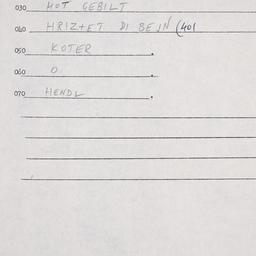 030 HOT GEBILT
040 HRIZTET DI BEJN (401
050 KOTER .
060 O. .
070 HENDL .